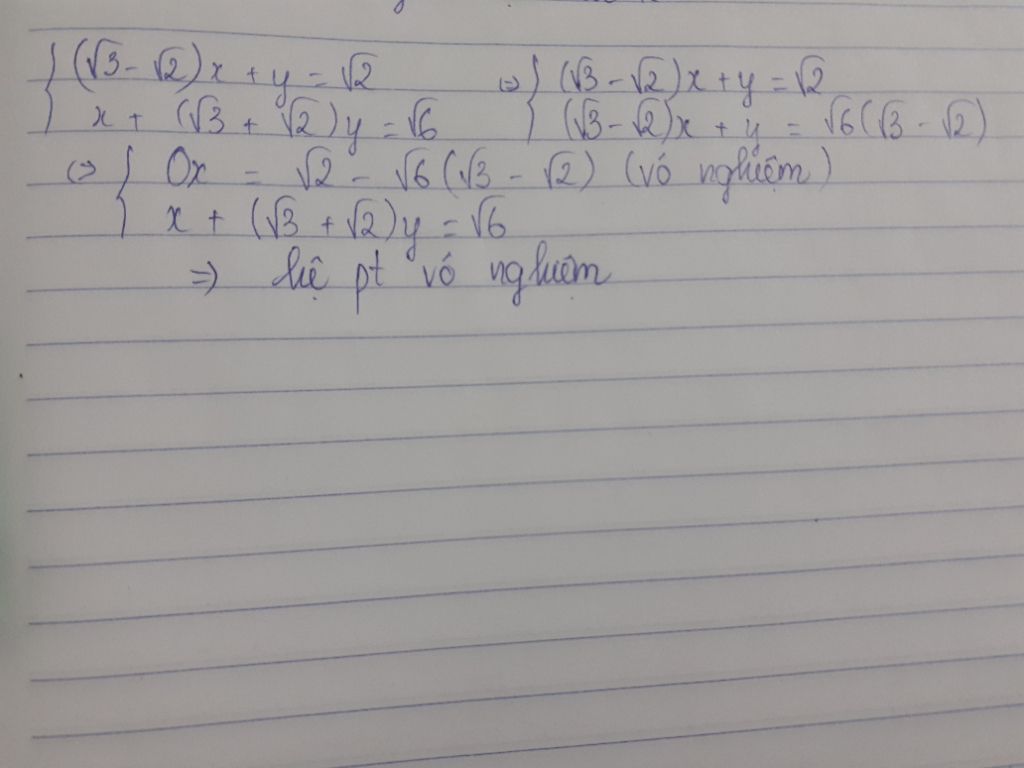 { (√3 - √2)x + y = √2 ⇔ { (√3 - √2)x + y = √2
x + (√3 + √2)y = √6 (√3 - √2)x + y = √6(√3 - √2)
⇔ { 0x = √2 - √6(√3 - √2) (vô nghiệm)
x + (√3 + √2)y = √6
⇒ hệ pt vô nghiệm